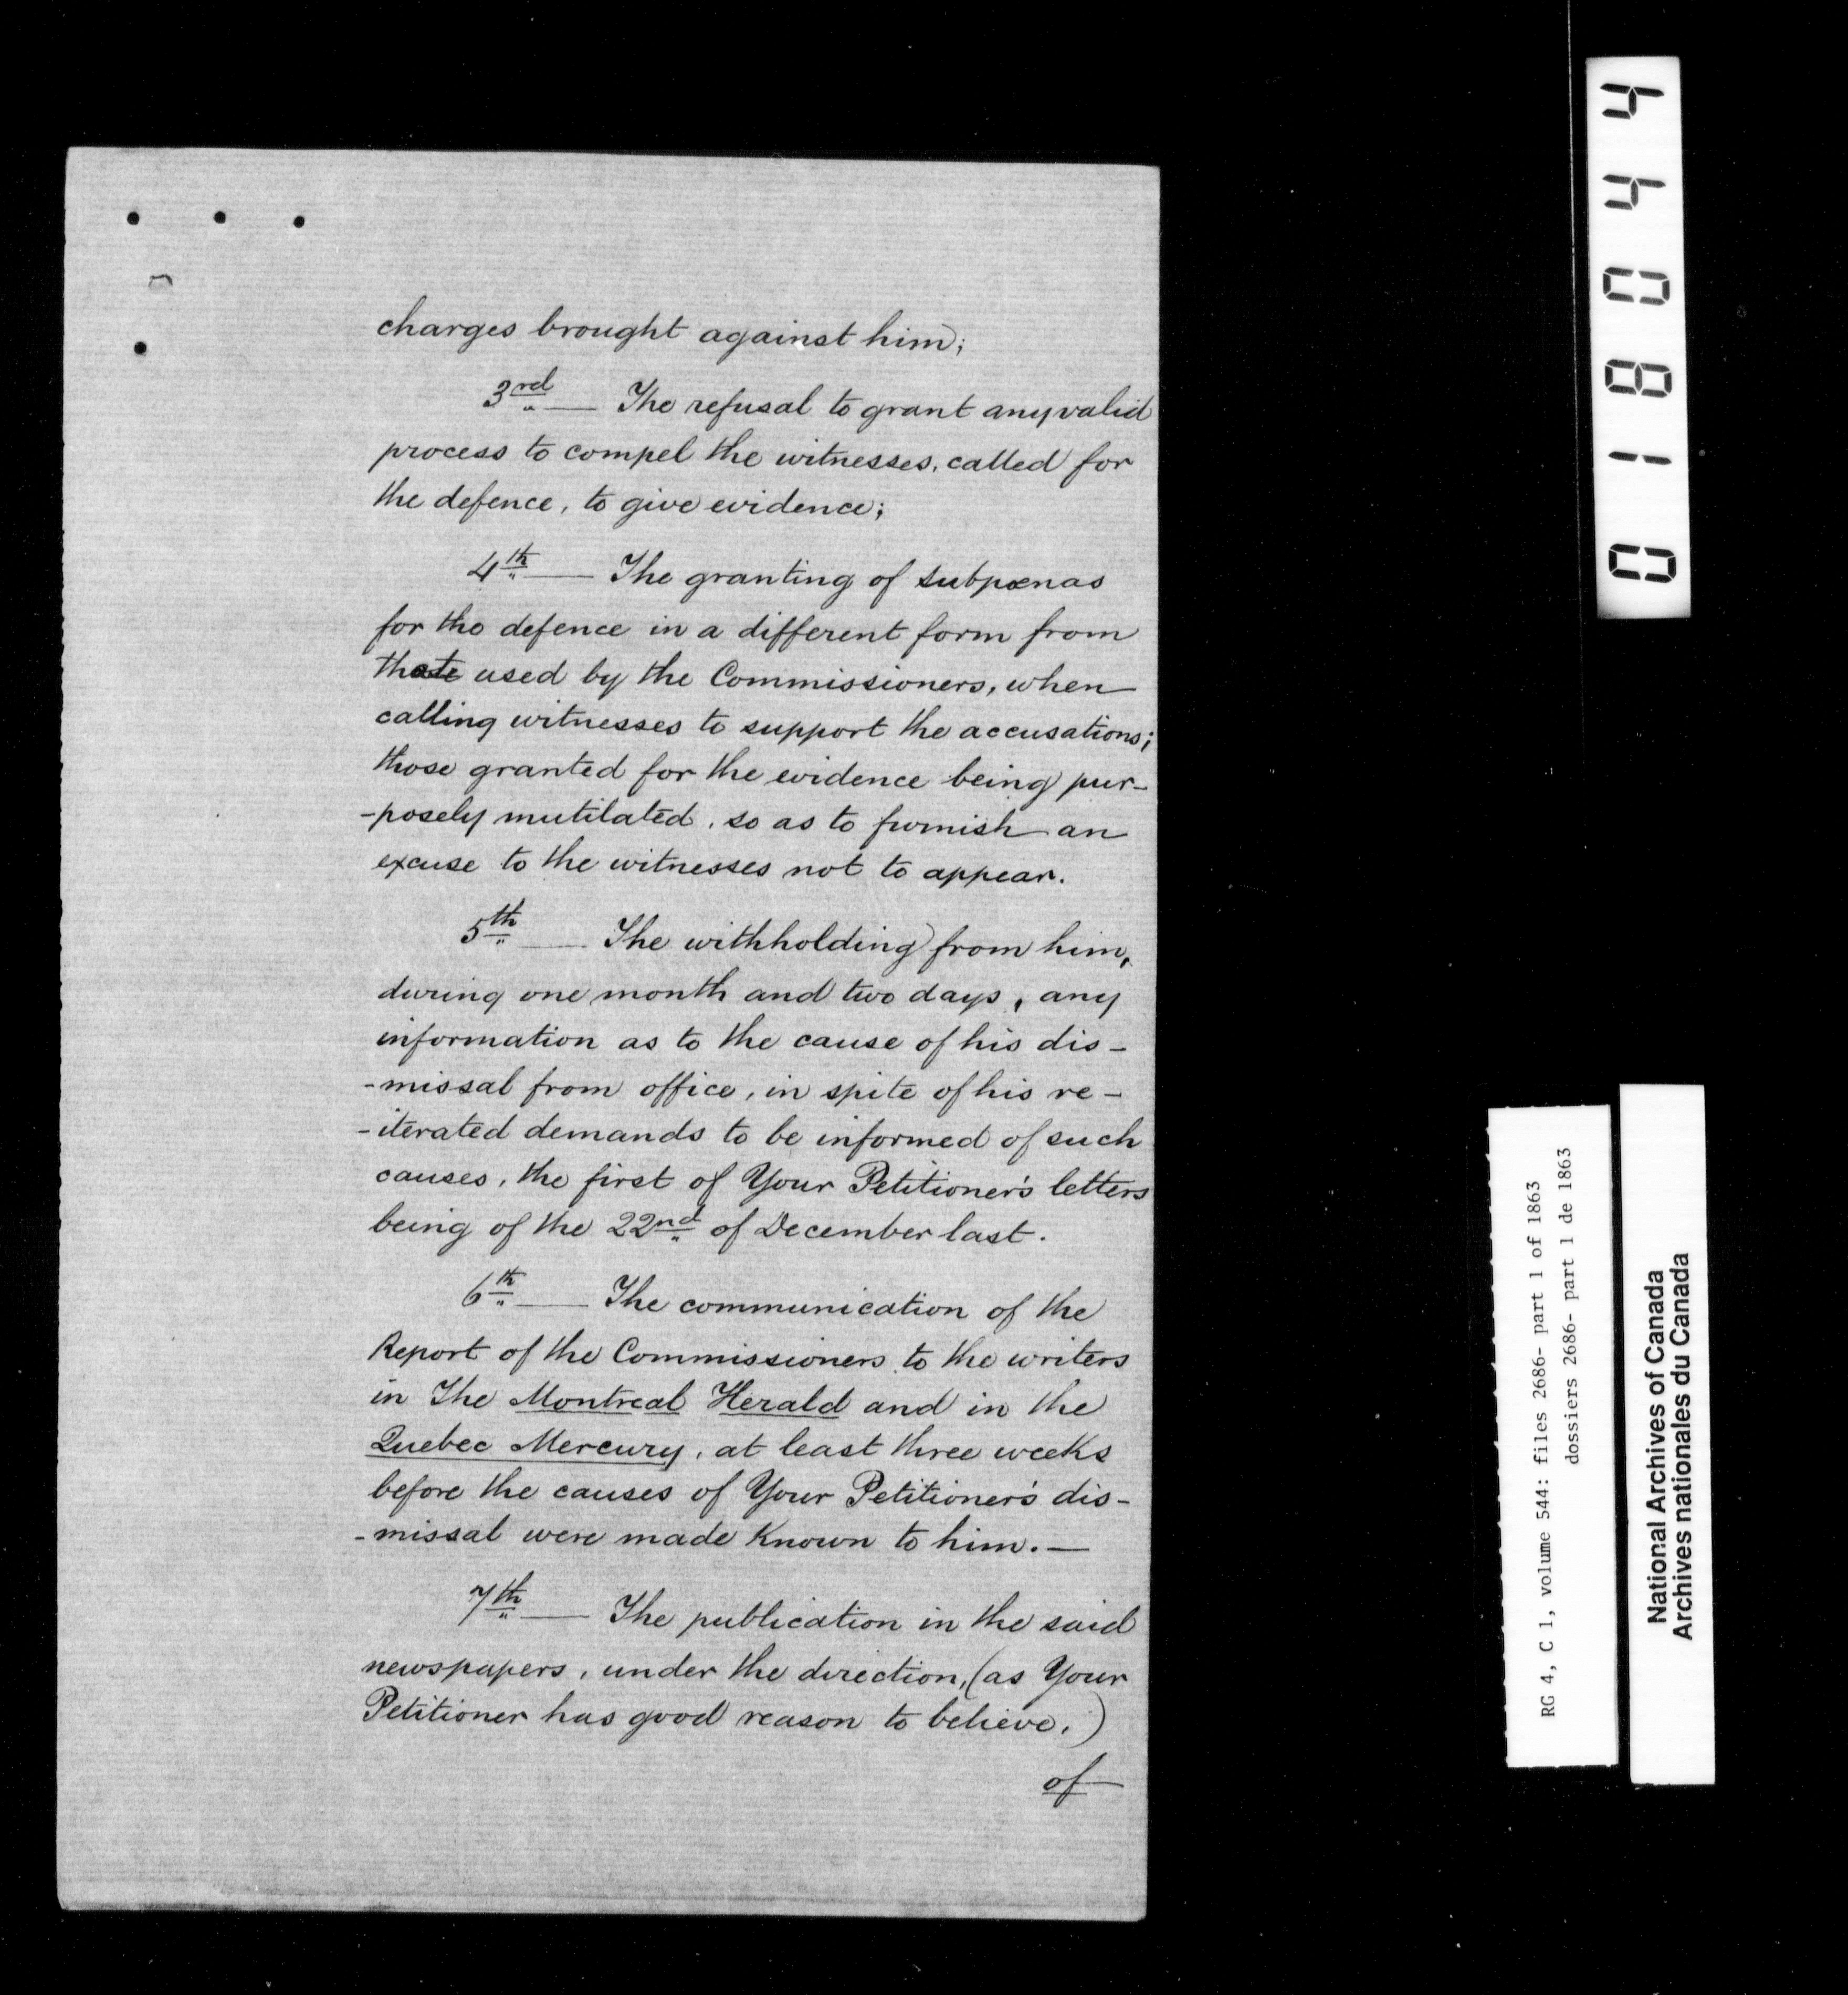 charges brought against him;
3rd — The refusal to grant any valid
process to compel the witnesses, called for
the defence, to give evidence;
4th — The granting of subpœnas
for the defence in a different form from
those used by the Commissioners, when
calling witnesses to support the accusations;
those granted for the evidence being pur-
-posely mutilated, so as to furnish an
excuse to the witnesses not to appear.
5th — The withholding from him,
during one month and two days, any
information as to the cause of his dis-
-missal from office, in spite of his re-
-iterated demands to be informed of such
causes, the first of Your Petitioner's letters
being of the 22nd of December last.
6th — The communication of the
Report of the Commissioners to the writers
in The Montreal Herald and in the
Quebec Mercury, at least three weeks
before the causes of Your Petitioner's dis-
-missal were made Known to him.—
7th — The publication in the said
newspapers, under the direction, (as Your
Petitioner has good reason to believe,)
of
018044
RG 4, C 1, volume 544: files 2686- part 1 of 1863
dossiers 2686- part 1 de 1863
National Archives of Canada
Archives nationales du Canada